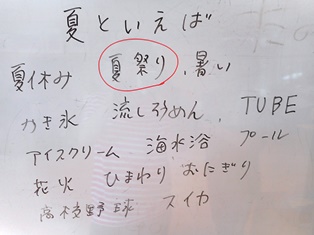 夏といえば
夏休み 夏祭り、暑い
かき氷 流しそうめん、 TUBE
アイスクリーム 海水浴 プール
花火 ひまわり おにぎり
高校野球 スイカ